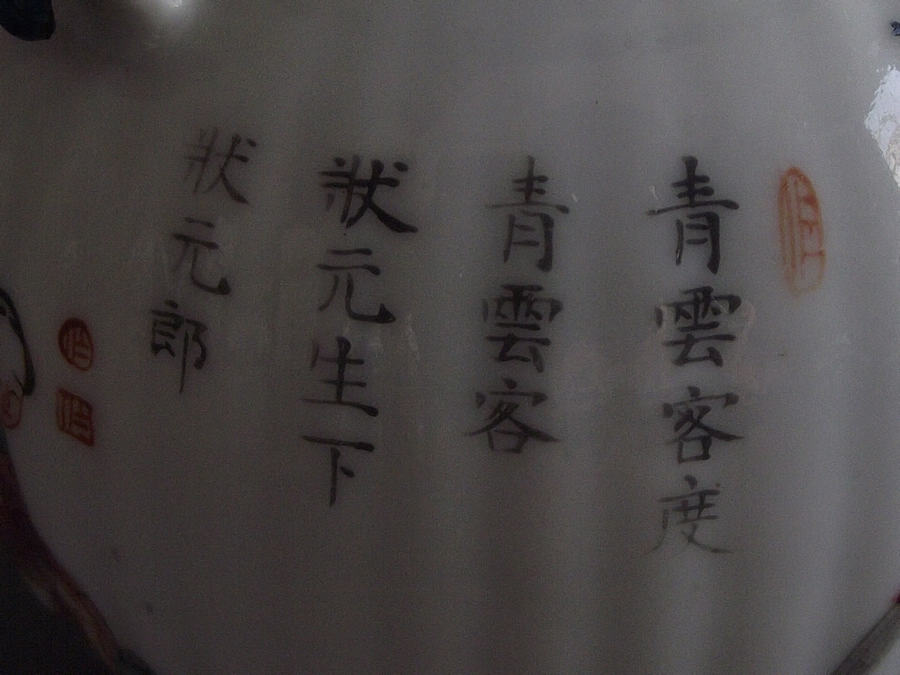 青雲客度
青雲客
狀元生下
狀元郎